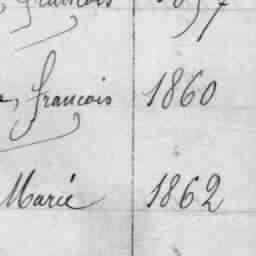 françois
françois 1860
Marie 1862